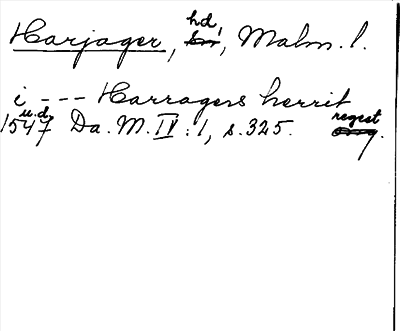 Harjager, hd, Malm. l.
i --- Harragers herrit
1547 u.d. Da. M. IV: 1, s. 325. regest